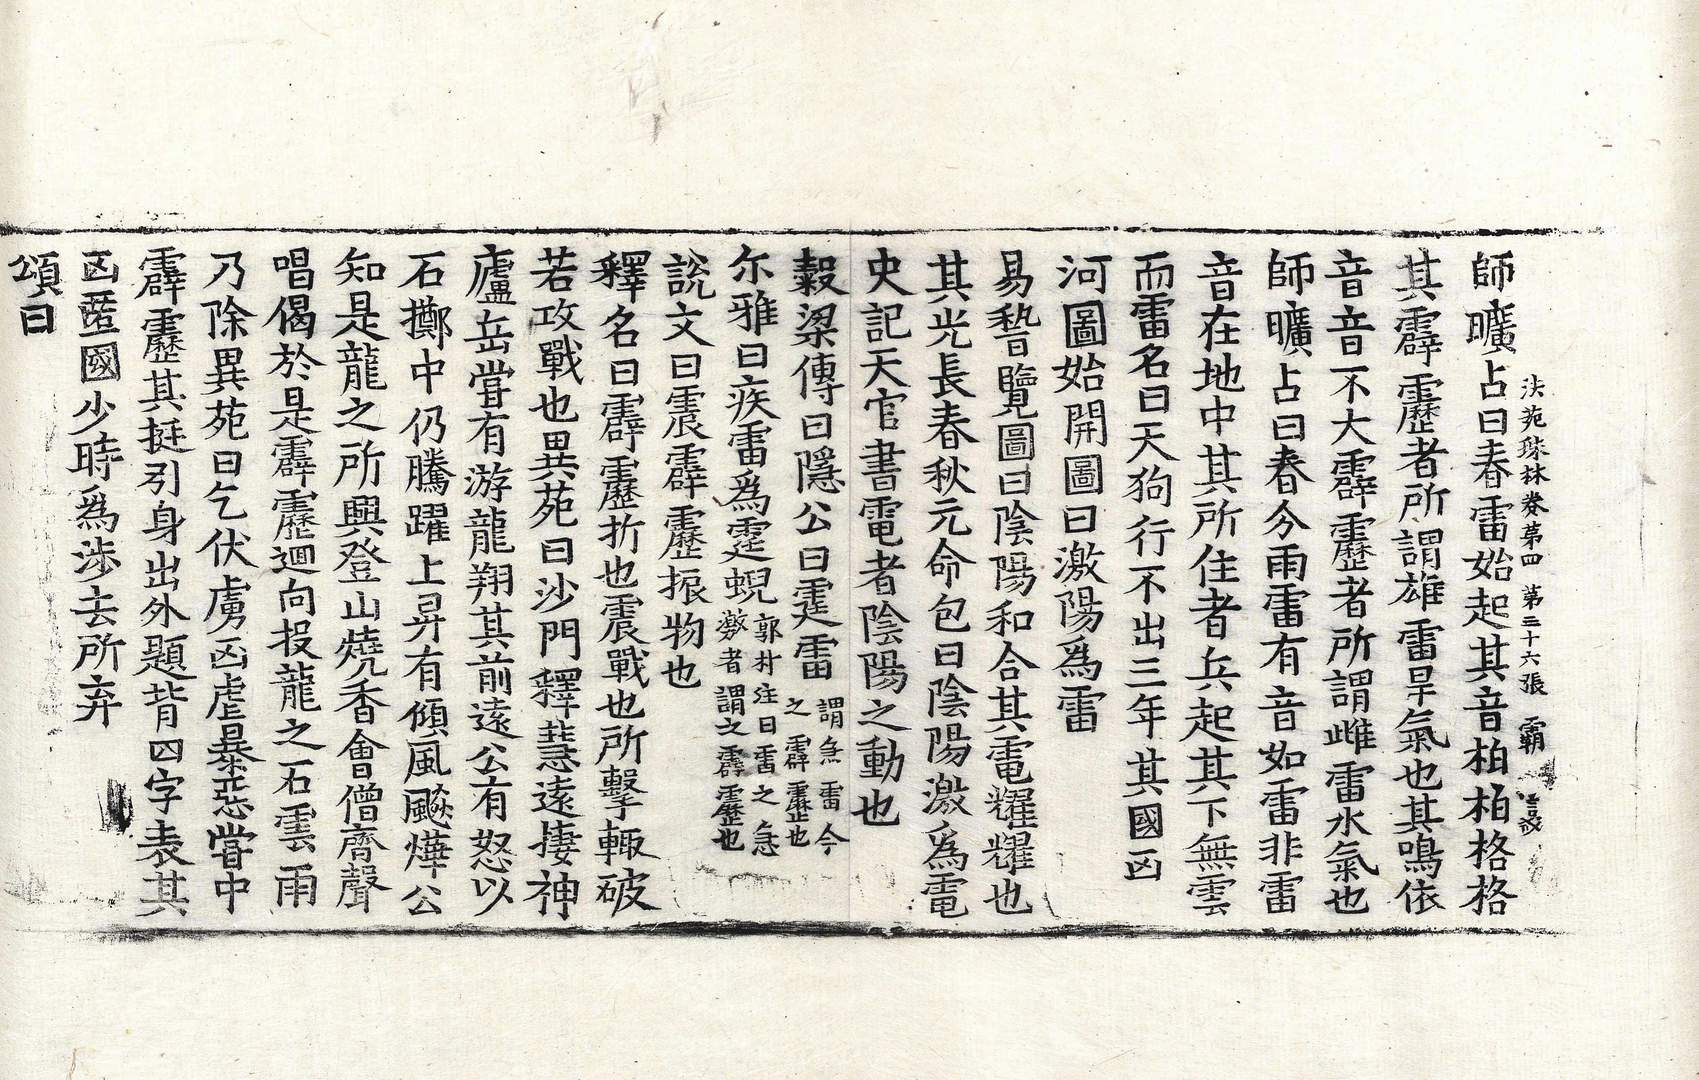 法苑珠林卷第四 第三十六張 霸
師曠占曰春雷始起其音柏柏格格
其霹靂者所謂雄雷旱氣也其鳴依
音音不大霹靂者所謂雌雷水氣也
師曠占曰春分雨雷有音如雷非雷
音在地中其所住者兵起其下無雲
而雷名曰天狗行不出三年其國凶
河圖始開圖曰激陽為雷
易嵇覽圖曰陰陽和合其電耀耀也
其光長春秋元命包曰陰陽激為電
史記天官書電者陰陽之動也
穀梁傳曰隱公曰霆雷謂急雷今之霹靂也
尔雅曰疾雷為霆蜺郭井注曰雷之急激者謂之霹靂也
說文曰震霹靂振物也
釋名曰霹靂折也震戰也所擊輙破
若攻戰也異苑曰沙門釋慧遠捿神
廬岳甞有游龍翔其前遠公有怒以
石擲中仍騰躍上昇有傾風飈燁公
知是龍之所興登山燒香會僧齊聲
唱偈於是霹靂迴向投龍之石雲雨
乃除異苑曰乞伏虜凶虐暴惡甞中
霹靂其挺引身出外題背四字表其
凶匿國少時為涉去所弃
頌曰